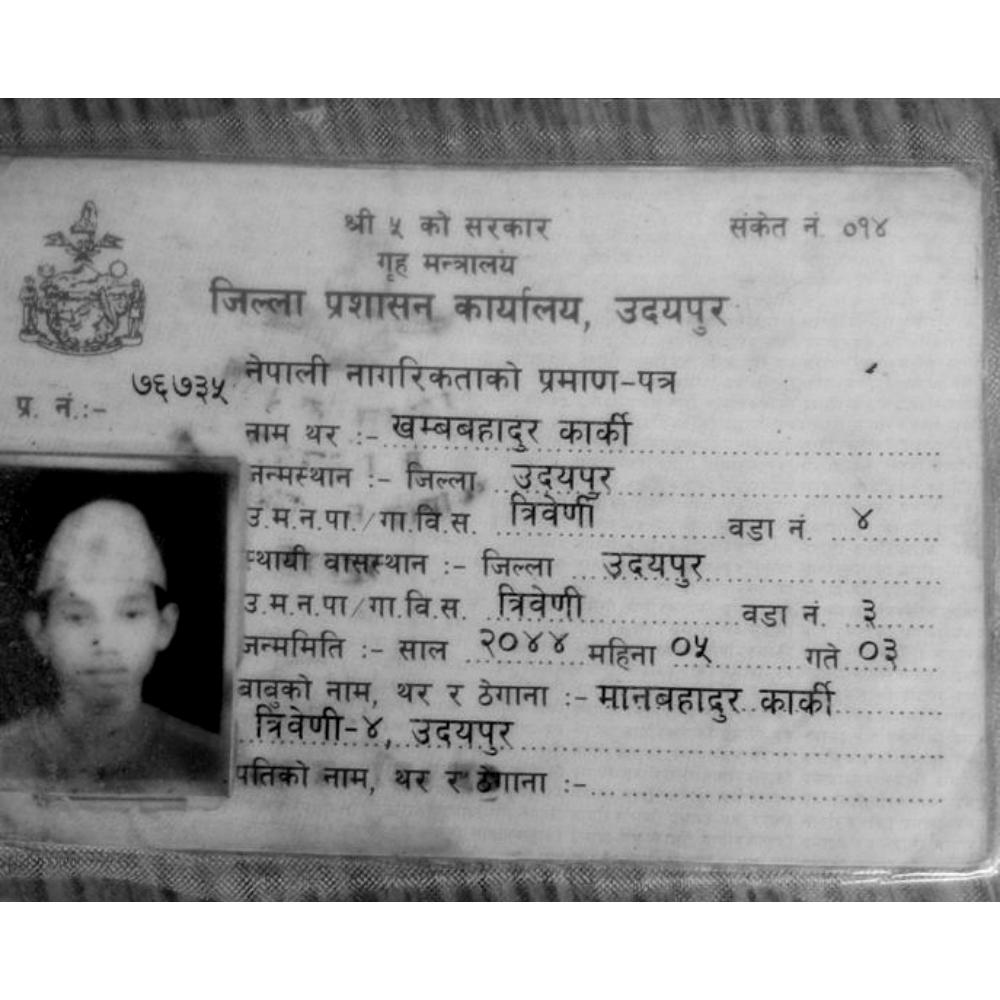 श्री ५ को सरकार
संकेत नं. ०१४
गृह मन्त्रालय
जिल्ला प्रशासन कार्यालय, उदयपुर
नेपाली नागरिकताको प्रमाण-पत्र
प्र. नं.:- ७६७३५
नाम थर :- खम्बबहादुर कार्की
जन्मस्थान :- जिल्ला उदयपुर
उ.म.न.पा./गा.वि.स. त्रिवेणी वडा नं. ४
स्थायी वासस्थान :- जिल्ला उदयपुर
उ.म.न.पा/गा.वि.स. त्रिवेणी वडा नं. ३
जन्ममिति :- साल २०४४ महिना ०५ गते ०३
बाबुको नाम, थर र ठेगाना :- मानबहादुर कार्की
त्रिवेणी-४, उदयपुर
पतिको नाम, थर र ठेगाना :-